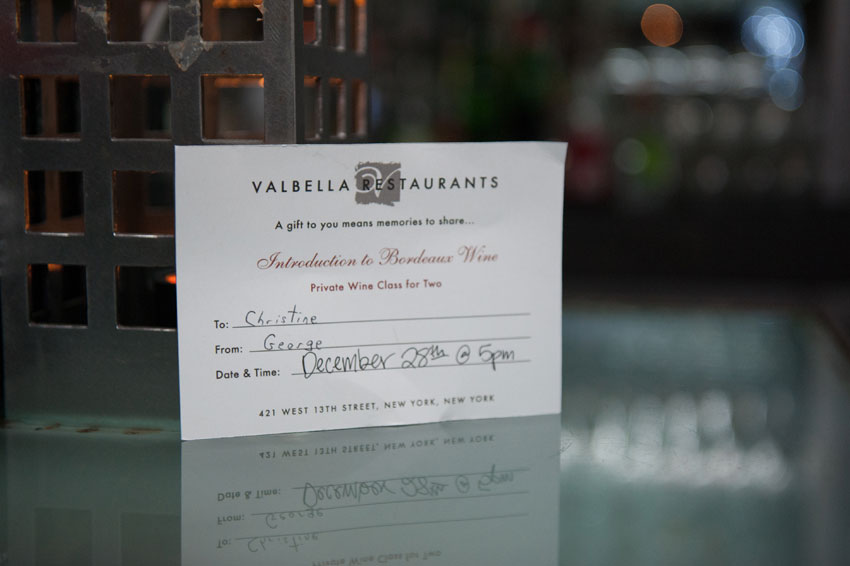 VALBELLA RESTAURANTS
A gift to you means memories to share...
Introduction to Bordeaux Wine
Private Wine Class for Two
To: Christine
From: George
Date & Time: December 28th @ 5pm
421 WEST 13TH STREET, NEW YORK, NEW YORK